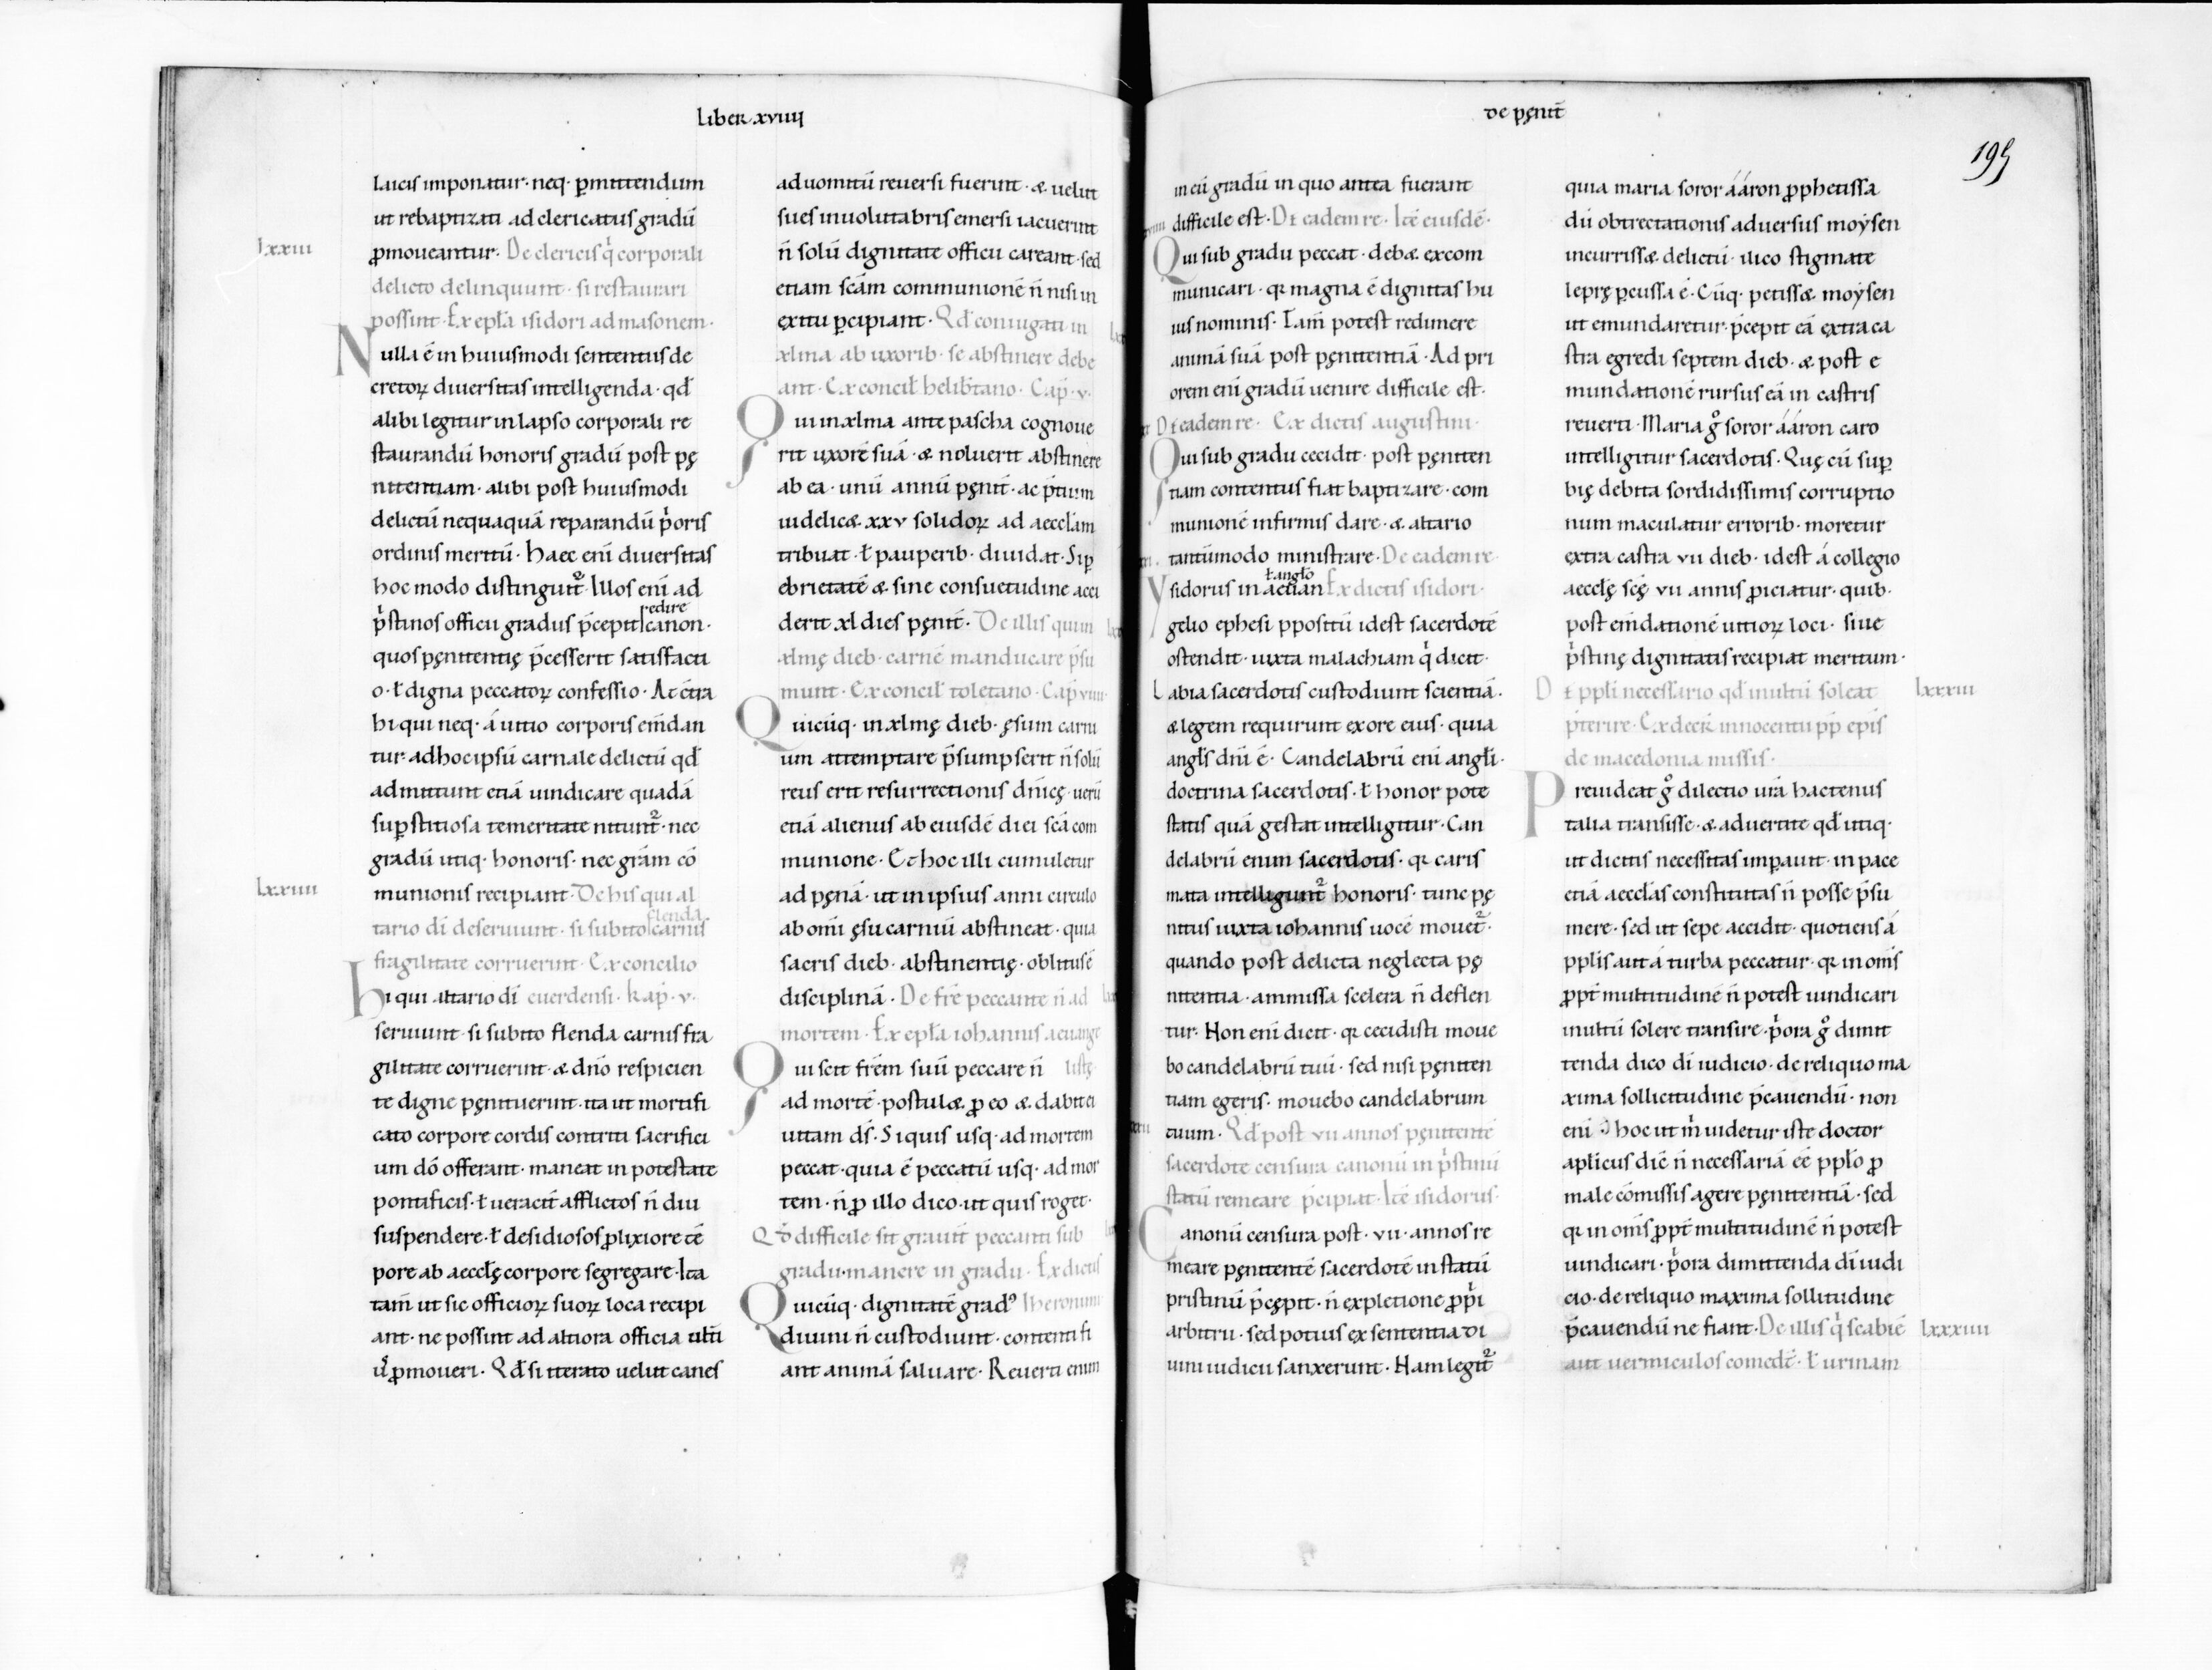 Liber xviiii
laicis imponatur· neq· p̄mittendum
ut rebaptizati ad clericatus gradū
ꝓmoueantur· De clericis q̇ corporali
lxxiii
delicto delinquunt· si restaurari
possint· Ex epl̄a isidori ad masonem·
Nulla ē in huiusmodi sententiis de
cretoꝝ diuersitas intelligenda· qđ
alibi legitur in lapso corporali re
staurandū honoris gradū post pę
nitentiam· alibi post huiusmodi
delictū nequaquā reparandū p̓oris
ordinis meritū· Haec enī diuersitas
hoc modo distinguit᷑· Illos enī ad
p̓stinos officii gradus p̄cepit redire canon·
quos pęnitentię p̄cesserit satisfacti
o· ł digna peccatoꝝ confessio· At ct̄ra
hi qui neq· á uitio corporis em̄dan
tur· ad hoc ipsū carnale delictū qđ
admittunt etiā uindicare quadā
sup̄stitiosa temeritate nitunt᷑· nec
gradū utiq· honoris· nec grām cō
munionis recipiant· De his qui al
lxxiiii
tario dī deseruiunt· si subito flenda carnis
fragilitate corruerint· Ex concilio
Hi qui altario dī euerdensi· kap̄· v·
seruiunt· si subito flenda carnis fra
gilitate corruerint· & dn̄o respicien
te digne pęnituerint· ita ut mortifi
cato corpore cordis contriti sacrifici
um dō offerant· maneat in potestate
pontificis· ł ueracit̄ afflictos n̄ diu
suspendere· ł desidiosos ꝓlixiore tē
pore ab aeccl̄ę corpore segregare· Ita
tam̄ ut sic officioꝝ suoꝝ loca recipi
ant· ne possint ad altiora officia ult̄i
u̓ ꝓmoueri· Qđ si iterato uelut canes
ad uomitū reuersi fuerint· & uelut
sues in uolutabris emersi iacuerint
n̄ solū dignitate officii careant· sed
etiam sc̄am communionē n̄ nisi in
exitu p̄cipiant· Qđ coniugati in
xlma ab uxorib· se abstinere debe
ant· Ex concil̄ helib̄tano· Cap̄· v·
Qui in xlma ante pascha cognoue
rit uxorē suā· & noluerit abstinere
ab ea· unū annū pęnit̄· ac p̄tium
uidelic& xxv solidoꝝ ad aeccl̄am
tribuat· ł pauperib· diuidat· Si p̄
ebrietatē & sine consuetudine acci
derit xl dies pęnit̄· De illis qui in
xlmę dieb· carnē manducare p̄su
munt· Ex concil̄ toletano· Cap̄ viiii·
Quicūq· in xlmę dieb· ęsum carni
um attemptare p̄sumpserit n̄ solū
reus erit resurrectionis dn̄icę· uerū
etiā alienus ab eiusdē diei sc̄a com
munione· Et hoc illi cumuletur
ad pęnā· ut in ipsius anni circulo
ab om̄i ęsu carniū abstineat· quia
sacris dieb· abstinentię· oblitus ē
disciplinā· De fr̄e peccante n̄ ad
mortem· Ex epl̄a iohannis aeuange
Qui scit fr̄em suū peccare n̄ listę·
ad mortē· postul& ꝓ eo & dabit ei
uitam dś· Si quis usq· ad mortem
peccat· quia ē peccatū usq· ad mor
tem· n̄ ꝓ illo dico· ut quis roget·
Qđ difficile sit grauit̄ peccanti sub
gradu· manere in gradu· Ex dictis
Quicūq· dignitatē gradꝰ Iheronimi
diuini n̄ custodiunt· contenti fi
ant animā saluare· Reuerti enim
de pęnit̄
195
in eū gradū in quo antea fuerant
difficile est· De eadem re· Itē eiusdē·
Qui sub gradu peccat· deb& excom
municari· qr magna ē dignitas hu
ius nominis· Tam̄ potest redimere
animā suā post pęnitentiā· Ad pri
orem enī gradū uenire difficile est·
De eadem re· Ex dictis augustini·
Qui sub gradu cecidit· post pęniten
tiam contentus fiat baptizare· com
munionē infirmis dare· & altario
tantūmodo ministrare· De eadem re·
Ysidorus in aeuan ł anglo Ex dictis isidori·
gelio ephesi p̄positū idest sacerdotē
ostendit· iuxta malachiam q̇ dicit·
Labia sacerdotis custodiunt scientiā·
& legem requirunt ex ore eius· quia
angl̄s dn̄i ē· Candelabrū enī angl̄i·
doctrina sacerdotis· ł honor pote
statis quā gestat intelligitur· Can
delabrū enim sacerdotis· qr caris
mata intelligunt᷑ honoris· tunc pę
nitus iuxta iohannis uocē mouet᷑·
quando post delicta neglecta pę
nitentia· ammissa scelera n̄ deflen
tur· Non enī dicit· qr cecidisti moue
bo candelabrū tuū· sed nisi pęniten
tiam egeris· mouebo candelabrum
tuum· Qđ post vii annos pęnitentē
sacerdotē censura canonū in p̓stinū
statū remeare p̄cipiat· Itē isidorus·
Canonū censura post· vii· annos re
meare pęnitentē sacerdotē in statū
pristinū p̄cępit· n̄ expletione ꝓp̓i
arbitrii· sed potius ex sententia di
uini iudicii sanxerunt· Nam legit᷑
quia maria soror ááron ꝓphetissa
dū obtrectationis aduersus moẏsen
incurriss& delictū· ilico stigmate
leprę p̄cussa ē· Cūq· petiss& moẏsen
ut emundaretur· p̄cepit eā extra ca
stra egredi septem dieb· & post e
mundationē rursus eā in castris
reuerti· Maria g̊ soror ááron caro
intelligitur sacerdotis· Quę cū sup̄
bię debita sordidissimis corruptio
num maculatur errorib· moretur
extra castra vii dieb· idest á collegio
aeccl̄ę sc̄ę vii annis ꝓiciatur· quib·
post em̄dationē uitioꝝ loci· siue
p̓stinę dignitatis recipiat meritum·
De ppl̄i necessario qđ inultū soleat
lxxxiii
p̄terire· Ex decr̄ innocentii pp̄ ep̄is
de macedonia missis·
Preuideat g̊ dilectio ur̄a hactenus
talia transisse· & aduertite qđ utiq·
ut dicitis necessitas imp̄auit· in pace
etiā aeccl̄as constitutas n̄ posse p̄su
mere· sed ut sepe accidit· quotiens á
ppl̄is aut á turba peccatur· qr in om̄s
ꝓpt̄ multitudinē n̄ potest uindicari
inultū solere transire· p̓ora g̊ dimit
tenda dico dī iudicio· de reliquo ma
xima sollicitudine p̄cauendū· non
enī hoc ut m̓ uidetur iste doctor
aplicus dic̄ n̄ necessariā eē ppl̄o ꝓ
male cōmissis agere pęnitentiā· sed
qr in om̄s ꝓpt̄ multitudinē n̄ potest
uindicari· p̓ora dimittenda dī iudi
cio· de reliquo maxima sollitudine
p̄cauendū ne fiant· De illis q̇ scabiē
lxxxiiii
aut uermiculos comedt̄· ł urinam